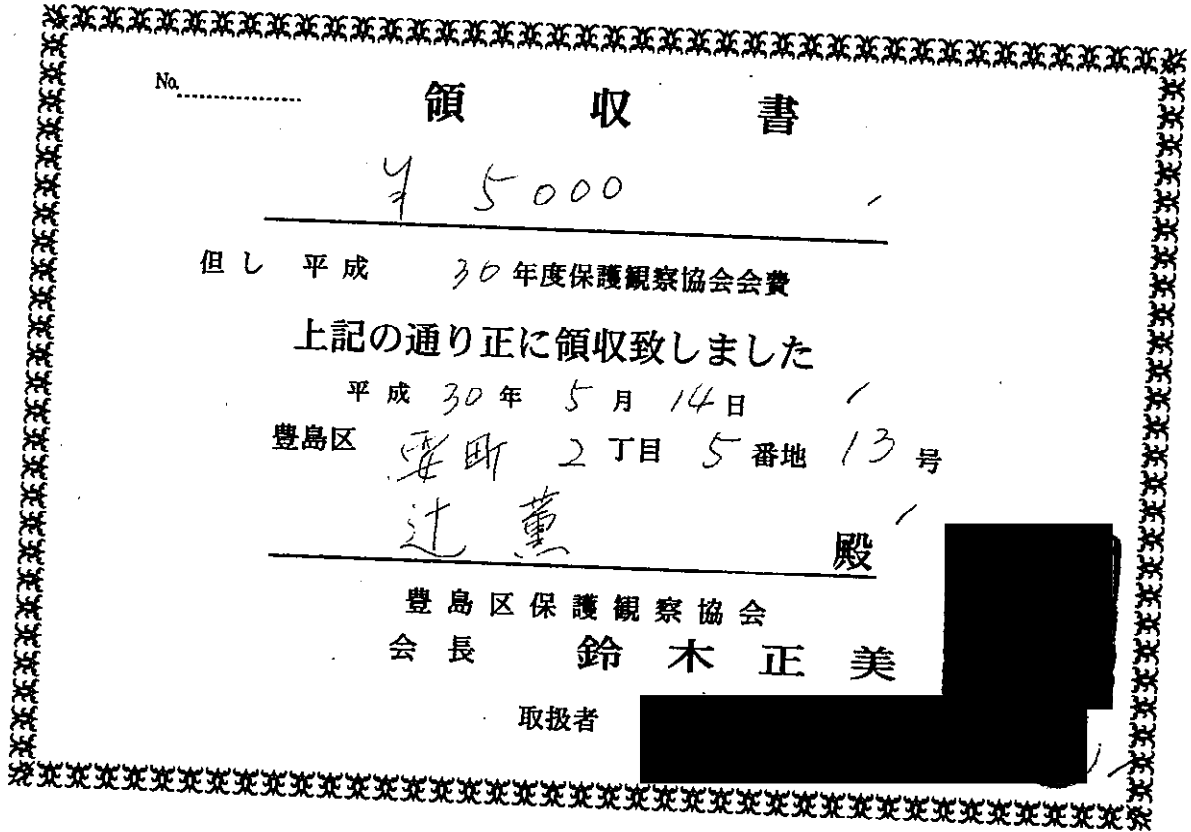 No.
領収書
¥ 5000
但し 平成 30年度保護観察協会会費
上記の通り正に領収致しました
平成 30年 5月 14日
豊島区 要町 2丁目 5番地 13号
辻 薫 殿
豊島区保護観察協会
会長 鈴木正美
取扱者